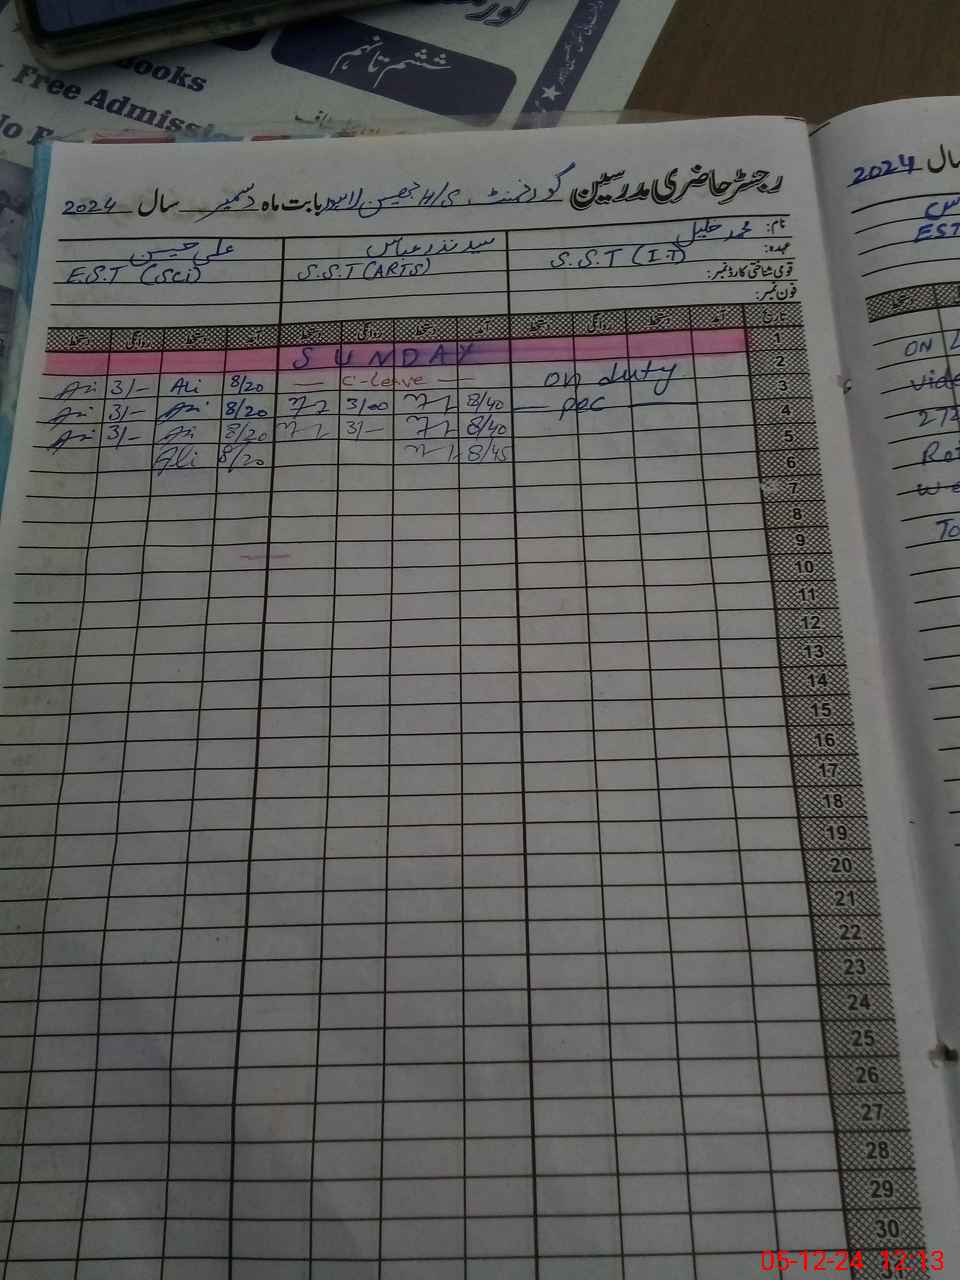 Books
Free Admissi
No F
ششم تا نہم
رجسٹر حاضری مدرسین گورنمنٹ H/S بابت ماہ دسمبر سال 2024
نام: محمد خلیل سید نذر عباس علی حسین
عہدہ: S.S.T (I.T) S.S.T (ARTS) E.S.T (Sci)
قومی شناختی کارڈ نمبر:
فون نمبر:
تاریخ آمد دستخط روانگی دستخط آمد دستخط روانگی دستخط آمد دستخط روانگی دستخط
1 SUNDAY
2 on duty — C-leave — 8/20 Ali 3/-
3 — PEC — 8/40 3/00 8/20 3/-
4 8/40 3/- 8/20 3/-
5 8/45 8/20 Ali
6
7
8
9
10
11
12
13
14
15
16
17
18
19
20
21
22
23
24
25
26
27
28
29
30
سال 2024
EST
ON
05-12-24 12:13